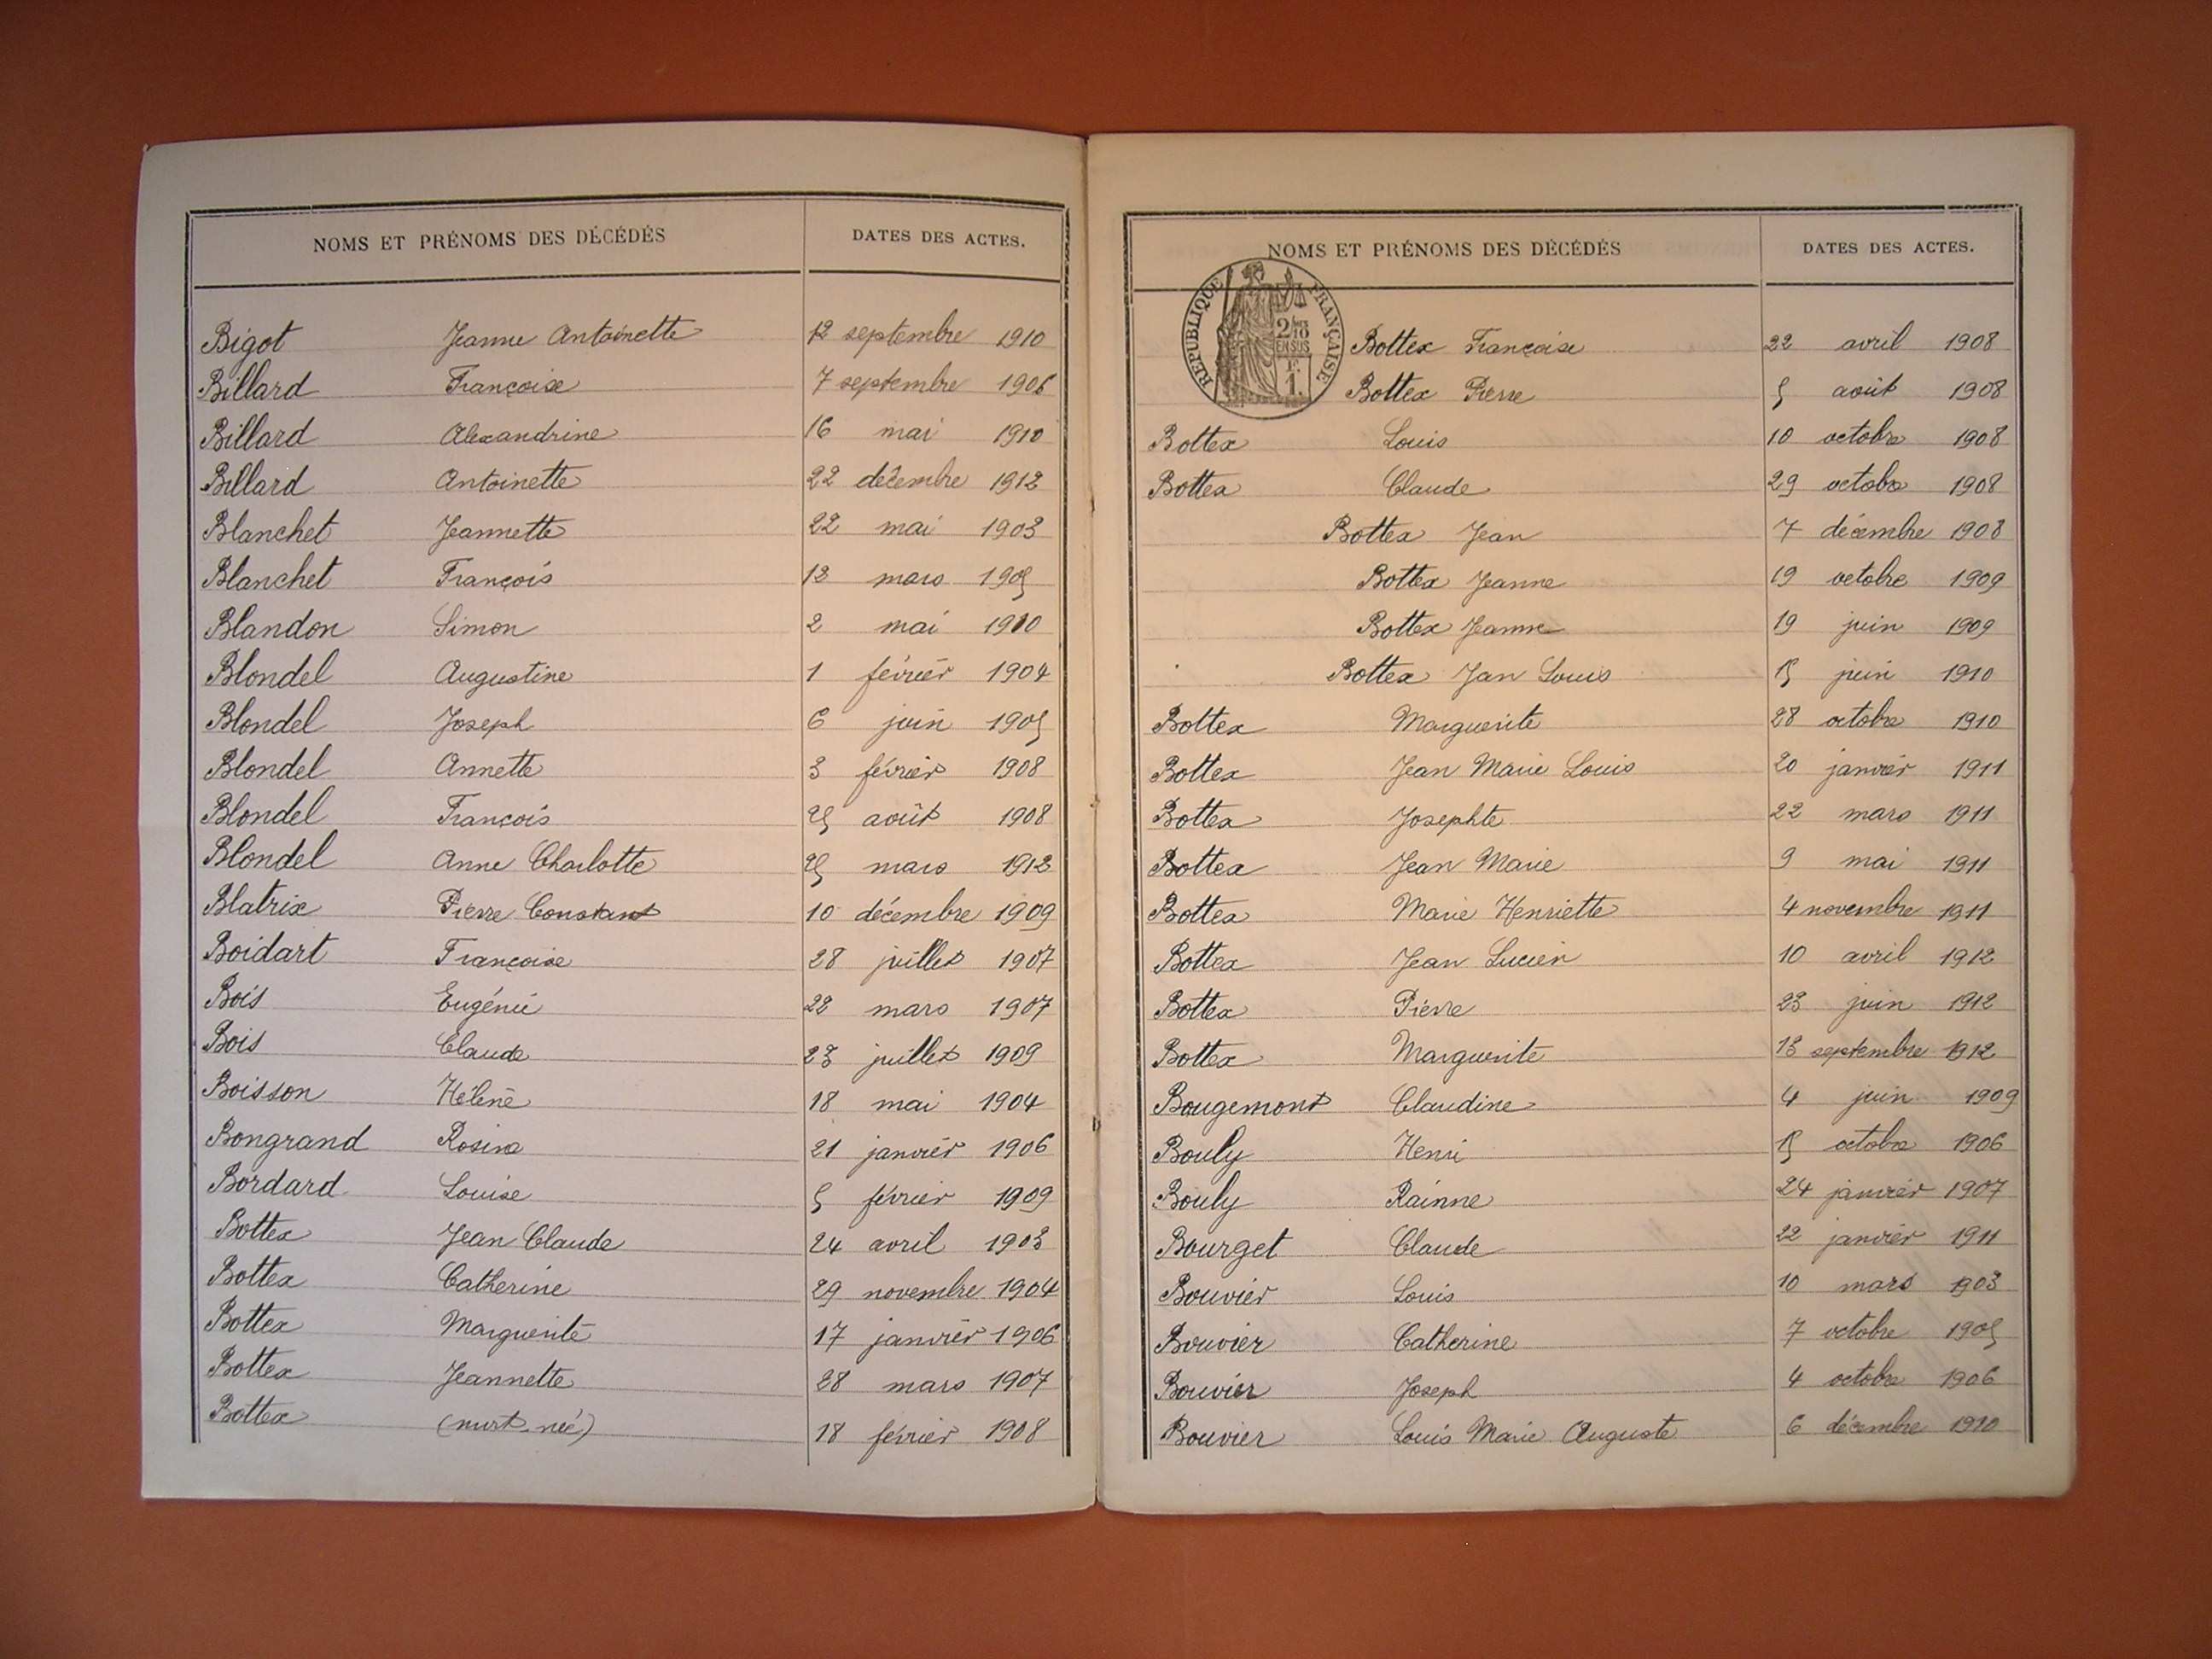 NOMS ET PRÉNOMS DES DÉCÉDÉS DATES DES ACTES.
Bigot Jeanne Antoinette 12 septembre 1910
Billard Françoise 7 septembre 1906
Billard Alexandrine 16 mai 1910
Billard Antoinette 22 décembre 1912
Blanchet Jeannette 22 mai 1903
Blanchet François 12 mars 1905
Blandon Simon 2 mai 1910
Blondel Augustine 1 février 1904
Blondel Joseph 6 juin 1905
Blondel Annette 3 février 1908
Blondel François 25 août 1908
Blondel Anne Charlotte 25 mars 1912
Blatrix Pierre Constant 10 décembre 1909
Boidart Françoise 28 juillet 1907
Bois Eugénie 22 mars 1907
Bois Claude 23 juillet 1909
Boisson Hélène 18 mai 1904
Bongrand Rosine 21 janvier 1906
Bordard Louise 5 février 1909
Bottex Jean Claude 24 avril 1903
Bottex Catherine 29 novembre 1904
Bottex Marguerite 17 janvier 1906
Bottex Jeannette 28 mars 1907
Bottex (mort-né) 18 février 1908
NOMS ET PRÉNOMS DES DÉCÉDÉS DATES DES ACTES.
RÉPUBLIQUE FRANÇAISE
2/10
EN SUS
F.
1.
Bottex Françoise 22 avril 1908
Bottex Pierre 5 août 1908
Bottex Louis 10 octobre 1908
Bottex Claude 29 octobre 1908
Bottex Jean 7 décembre 1908
Bottex Jeanne 19 octobre 1909
Bottex Jeanne 19 juin 1909
Bottex Jean Louis 15 juin 1910
Bottex Marguerite 28 octobre 1910
Bottex Jean Marie Louis 20 janvier 1911
Bottex Josephte 22 mars 1911
Bottex Jean Marie 9 mai 1911
Bottex Marie Henriette 4 novembre 1911
Bottex Jean Lucien 10 avril 1912
Bottex Pierre 23 juin 1912
Bottex Marguerite 13 septembre 1912
Bougemont Claudine 4 juin 1909
Bouly Henri 15 octobre 1906
Bouly Rainne 24 janvier 1907
Bourget Claude 22 janvier 1911
Bouvier Louis 10 mars 1903
Bouvier Catherine 7 octobre 1905
Bouvier Joseph 4 octobre 1906
Bouvier Louis Marie Auguste 6 décembre 1910